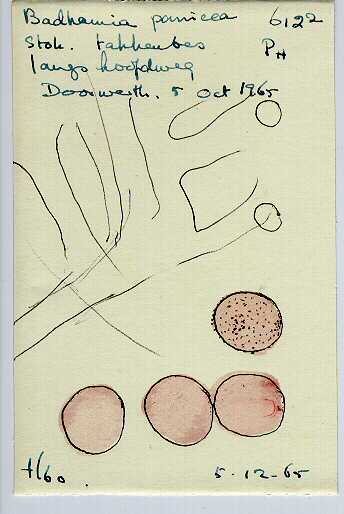 Badhamia panicea 6122
Stok. takkenbos PH
langs hoofdweg
Doorwerth. 5 oct 1965
H60. 5-12-65